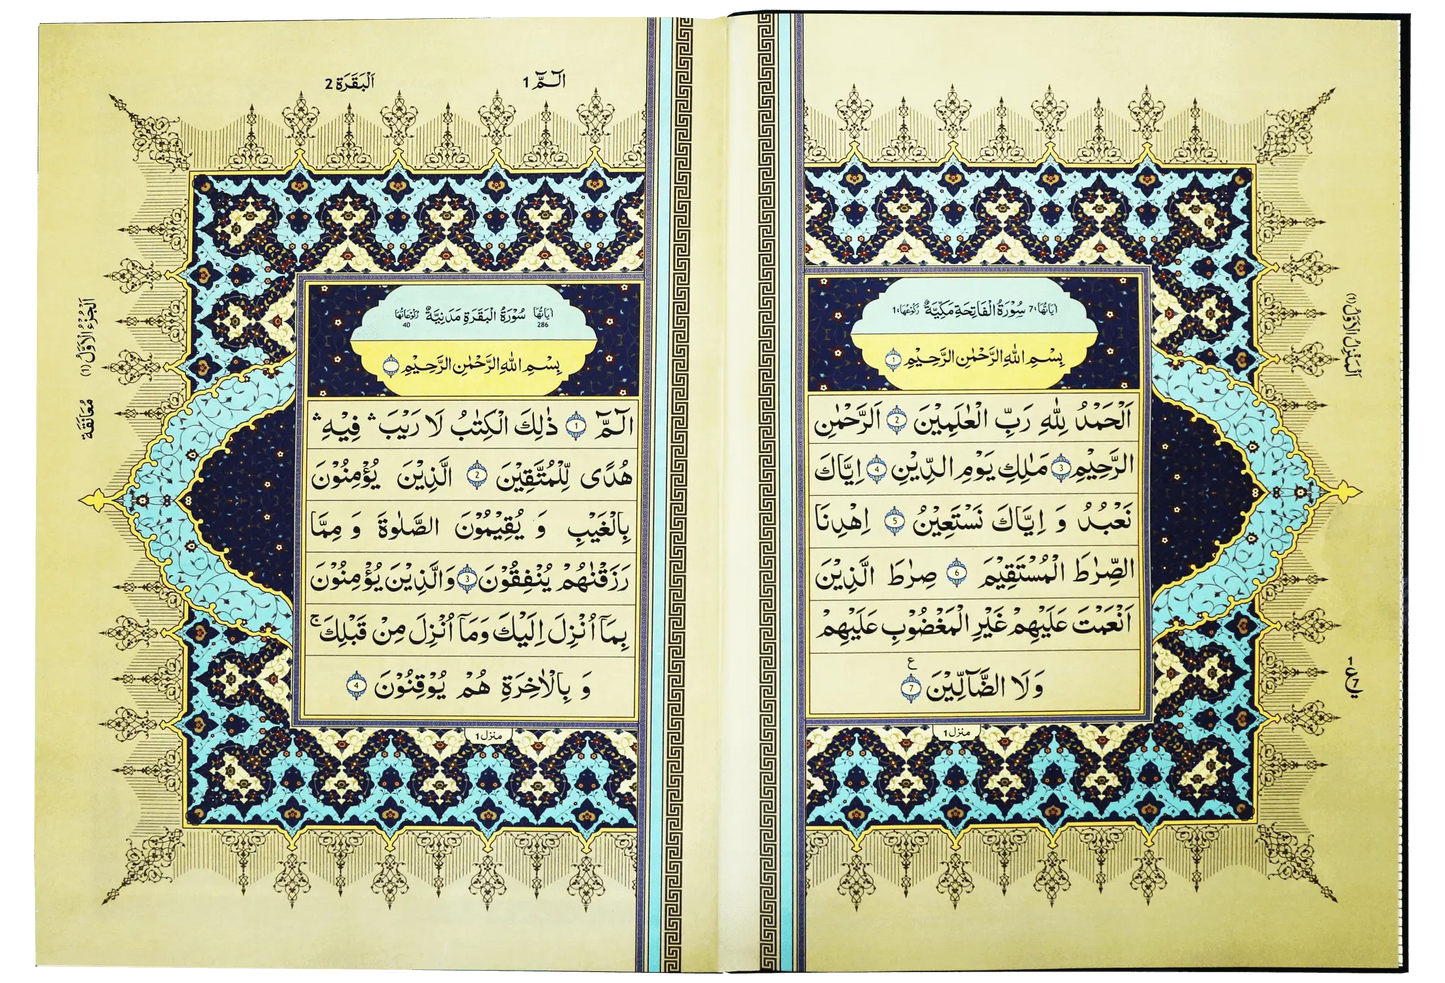 اٰيَاتُهَا 7 سُوْرَةُ الْفَاتِحَةِ مَكِّيَّةٌ رُكُوْعُهَا 1
بِسْمِ اللهِ الرَّحْمٰنِ الرَّحِيْمِ 1
اَلْحَمْدُ لِلّٰهِ رَبِّ الْعٰلَمِيْنَ 2 اَلرَّحْمٰنِ
الرَّحِيْمِ 3 مٰلِكِ يَوْمِ الدِّيْنِ 4 اِيَّاكَ
نَعْبُدُ وَ اِيَّاكَ نَسْتَعِيْنُ 5 اِهْدِنَا
الصِّرٰطَ الْمُسْتَقِيْمَ 6 صِرٰطَ الَّذِيْنَ
اَنْعَمْتَ عَلَيْهِمْ غَيْرِ الْمَغْضُوْبِ عَلَيْهِمْ
وَلَا الضَّآلِّيْنَ 7 ع
منزل 1
اَلْمَنْزِلُ الْاَوَّلُ (1)
الٓمّٓ 1
اَلْبَقَرَة 2
اٰيَاتُهَا 286 سُوْرَةُ الْبَقَرَةِ مَدَنِيَّةٌ رُكُوْعَاتُهَا 40
بِسْمِ اللهِ الرَّحْمٰنِ الرَّحِيْمِ
الٓمّٓ 1 ذٰلِكَ الْكِتٰبُ لَا رَيْبَ ۛ فِيْهِ ۛ
هُدًى لِّلْمُتَّقِيْنَ 2 الَّذِيْنَ يُؤْمِنُوْنَ
بِالْغَيْبِ وَ يُقِيْمُوْنَ الصَّلٰوةَ وَ مِمَّا
رَزَقْنٰهُمْ يُنْفِقُوْنَ 3 وَالَّذِيْنَ يُؤْمِنُوْنَ
بِمَآ اُنْزِلَ اِلَيْكَ وَمَآ اُنْزِلَ مِنْ قَبْلِكَ ۚ
وَ بِالْاٰخِرَةِ هُمْ يُوْقِنُوْنَ 4
منزل 1
اَلْجُزْءُ الْاَوَّلُ (1)
مُعَانَقَة